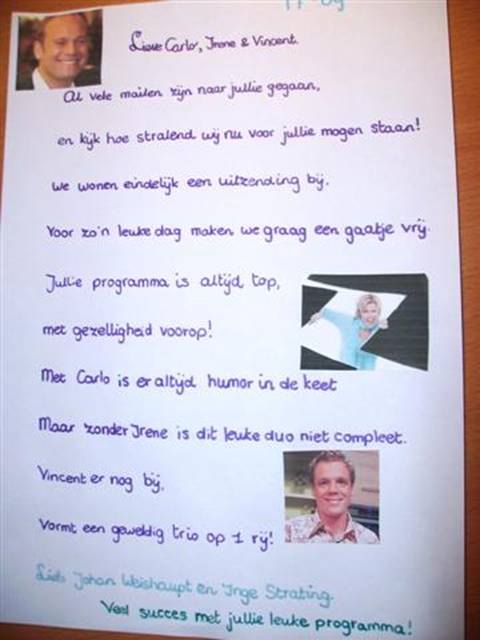 Lieve Carlo, Irene & Vincent.
Al vele mailen zijn naar jullie gegaan,
en kijk hoe stralend wij nu voor jullie mogen staan!
We wonen eindelijk een uitzending bij.
Voor zo'n leuke dag maken we graag een gaatje vrij.
Jullie programma is altijd top,
met gezelligheid voorop!
Met Carlo is er altijd humor in de keet
Maar zonder Irene is dit leuke duo niet compleet.
Vincent er nog bij,
Vormt een geweldig trio op 1 rij!
Liefs Johan Weishaupt en Inge Strating.
Veel succes met jullie leuke programma!